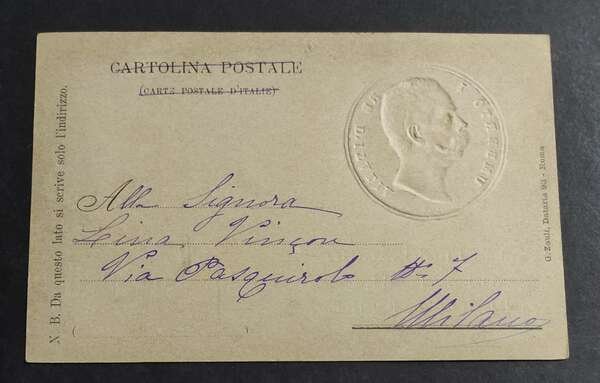 CARTOLINA POSTALE
(CARTE POSTALE D'ITALIE)
N. B. Da questo lato si scrive solo l'indirizzo.
G. Zauli, Dataria 93 - Roma
Alla Signora
Lina Vinçon
Via Pasquirolo No 7
Milano